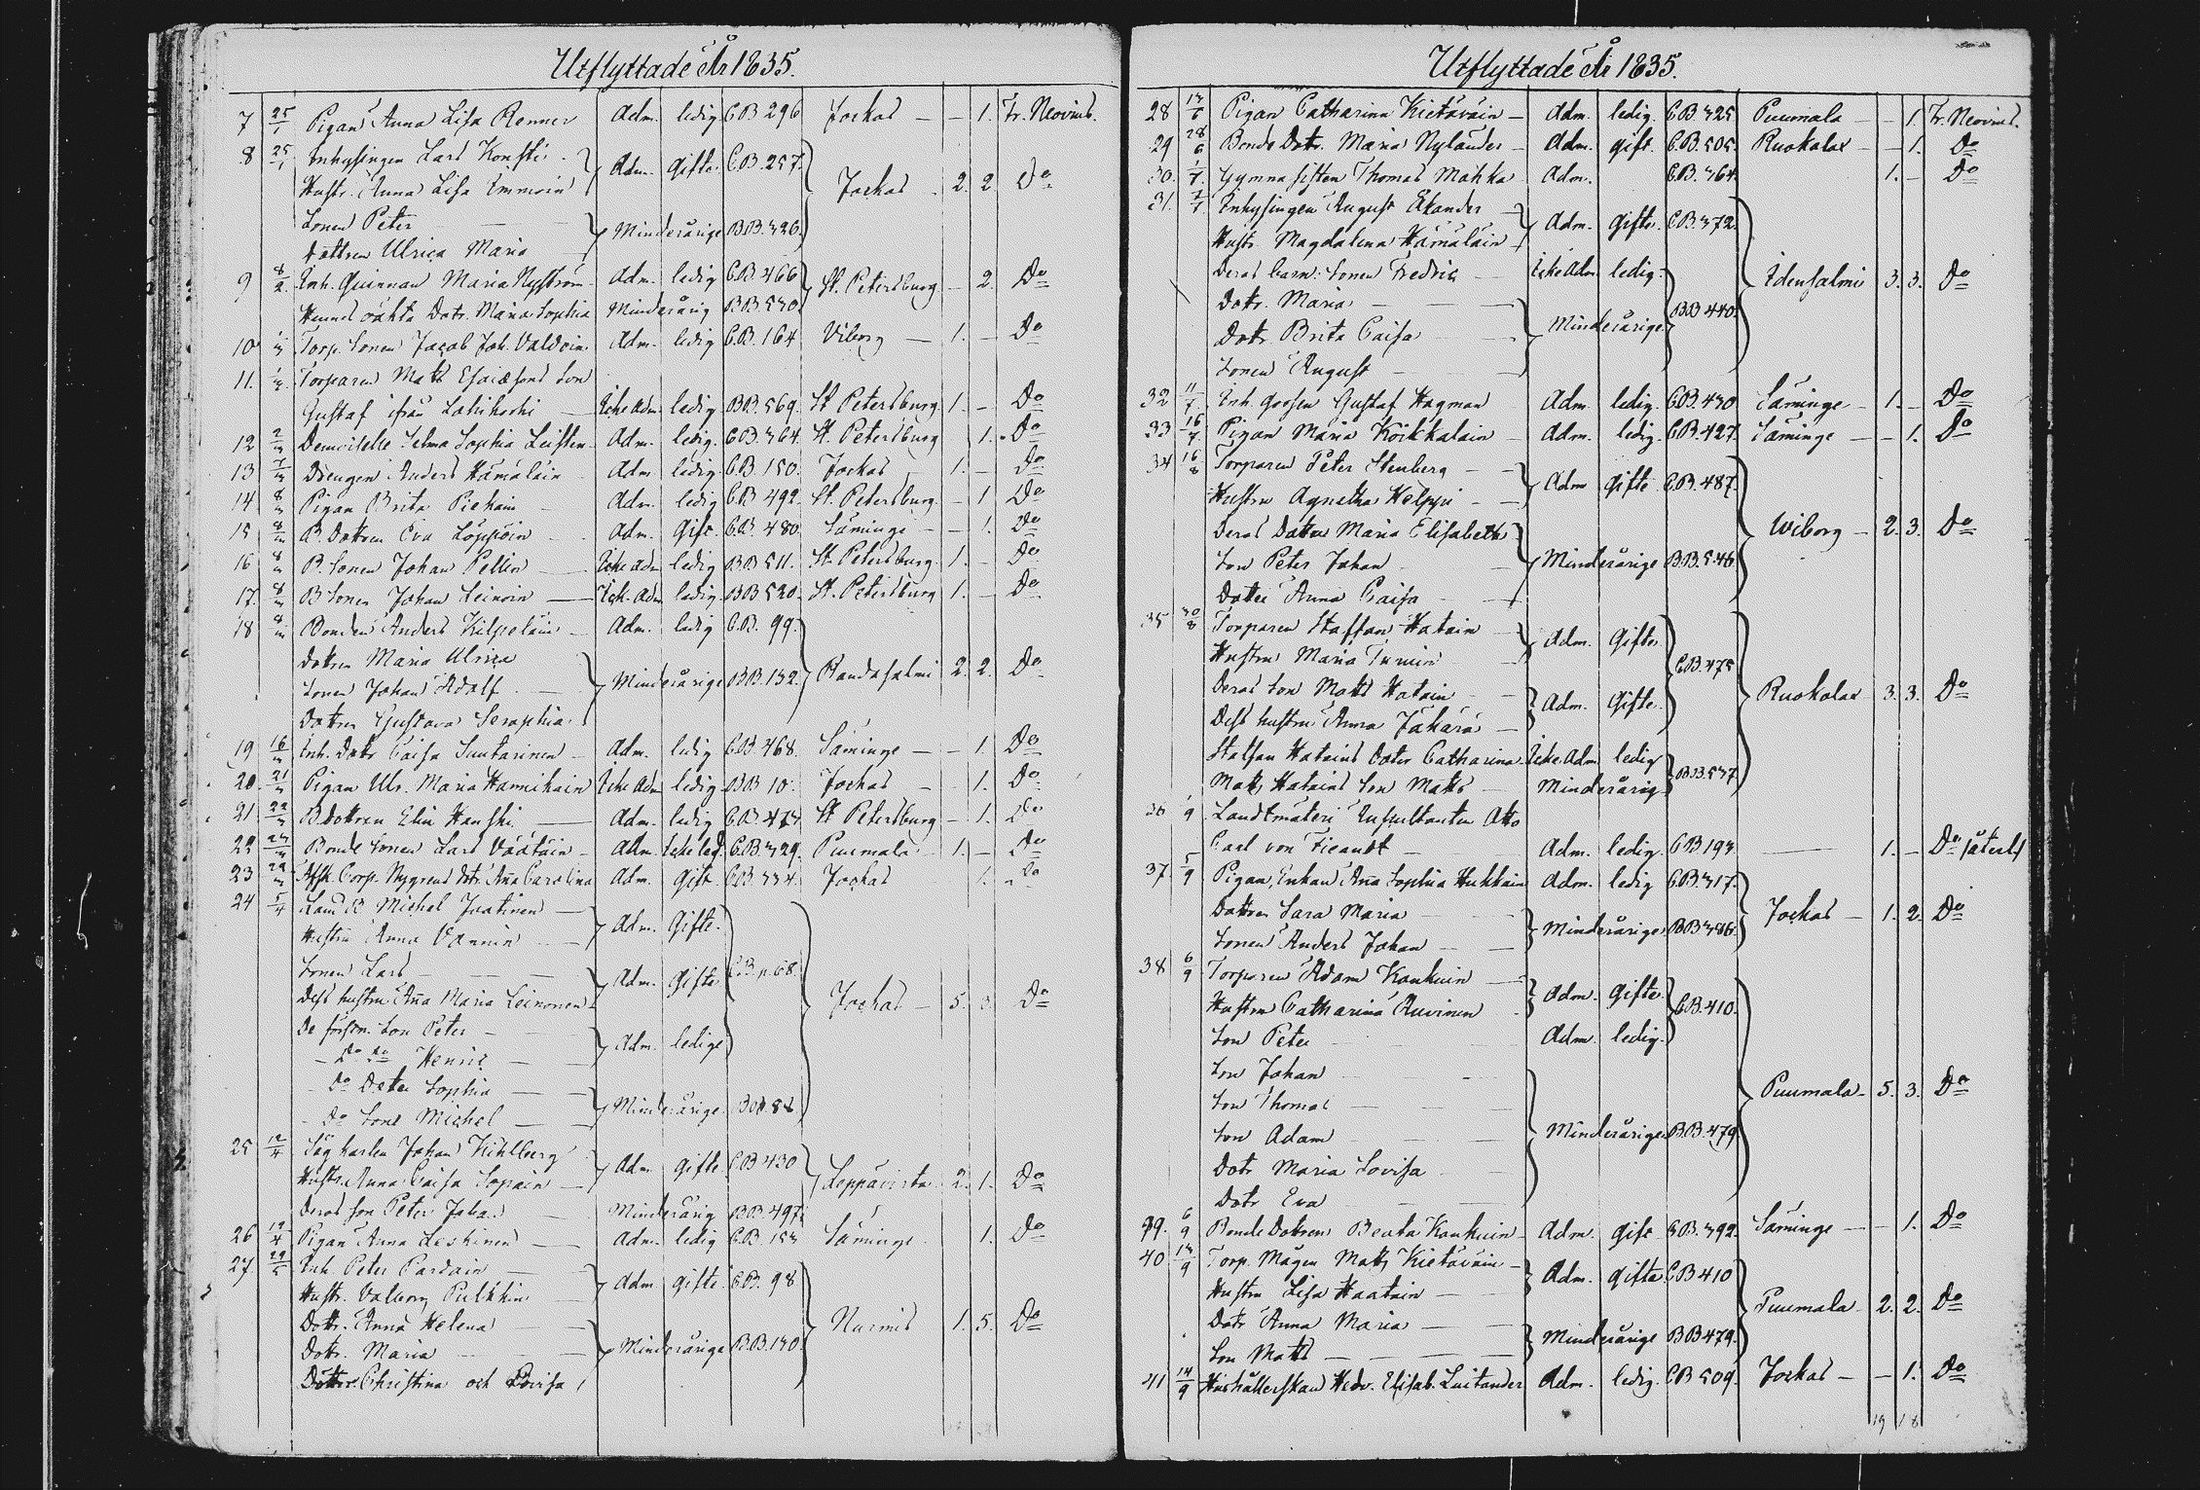 Utflyttade År 1835.
7 25/1 Pigan Anna Lisa Renner Adm. ledig C.B. 296 Jockas — — 1. Fr. Neovius.
8 25/1 Inhysingen Lars Konsti
Hustr. Anna Lisa Immoin Adm. Gifte C.B. 257. Jockas 2. 2. Do
Sonen Peter
Dottren Ulrica Maria Minderårige B.B. 326.
9 8/2 Inh. Quinnan Maria Nyström Adm. ledig C.B. 466 St. Petersburg — 2. Do
Hennes oäkta Dotr. Maria Sophia Minderårig B.B. 530
10 1/3 Torp. Sonen Jacob Joh. Valdoin Adm. ledig C.B. 164 Viborg — 1. — Do
11. 1/3 Torparen Matts Esaiæsons Son
Gustaf ifrån Icke Adm. ledig B.B. 569. St Petersburg 1. — Do
12 2/3 Demoiselle Selma Sophia Leisten Adm. ledig. C.B. 364. St. Petersburg 1. Do
13 7/3 Drengen Anders Hämäläin Adm ledig C.B. 150. Jockas 1. — Do
14 8/3 Pigan Brita Piekain Adm. ledig C.B. 492. St. Petersburg — 1 Do
15 8/3 B. Dottren Eva Löppöin Adm. Gift. C.B. 480. Säminge — 1. Do
16 8/3 B. Sonen Johan Pellin Icke Adm ledig B.B. 511. St. Petersburg 1. — Do
17. 8/3 B Sonen Johan Leinoin Ick. Adm ledig B.B. 520. St. Petersburg 1. — Do
18 8/3 Bonden Anders Kilpeläin Adm. ledig C.B. 99.
Dottren Maria Ulrica
Sonen Johan Adolf Minderårige B.B. 132. Randasalmi 2. 2. Do
Dottren Gustava Seraphia
19 16/3 Inh. Dotr Caisa Suutarinen Adm. ledig C.B. 468. Säminge — — 1. Do
20. 21/3 Pigan Ulr. Maria Hannikain Icke Adm ledig B.B. 10. Jockas — 1. Do
21. 22/3 B. dottren Elin Hanski Adm. ledig C.B. 474 St Petersburg — 1. Do
22 Bonde Sonen Lars Väätäin Adm. C.B. 329. Puumala 1. — Do
23 Afsk. Corp. Nygrens Dotr. Anna Carolina Adm. Gift. C.B. 334. Jockas 1. Do
24 5/4 Land B. Michel Jaatinen
Hustru Anna Vännin Adm. Gifte.
Sonen Lars C.B. p. 68.
Dess hustru Anna Maria Leinonen Adm. Gifte Jockas — 5. 3. Do
De förstn. Son Peter
Do do Henric Adm. ledige
Do Dotter Sophia
Do Sone Michel Minderårige B.B. 82
25 12/4 Johan Kihlberg
Hustr. Anna Caisa Sopain Adm gifte C.B. 430 Leppävirta 2. 1. Do
Deras son Peter Johan Minderårig B.B. 497
26 12/4 Pigan Anna Leskinen Adm. ledig C.B. 153 Säminge 1. Do
27 Inh. Peter Pardain
Hustr. Valborg Pulkkin Adm gifte C.B. 98
Dottr. Anna Helena Nurmis 1. 5. Do
Dotr. Maria Minderårige B.B. 130.
Döttrar Christina och Lovisa
Utflyttade År 1835.
28 Pigan Catharina Kietäväin Adm. ledig. C.B. 325 Puumala — — 1 Fr. Neovius.
29 28/6 Bonde Dotr. Maria Nylander Adm. gift. C.B. 505. Ruokolax — 1. Do
30. 1/7. Gymnasisten Thomas Mahka Adm. C.B. 364. 1. — Do
31. Inhysingen August Ekander
Hustr. Magdalena Hämäläin Adm. Gifte. C.B. 372.
Deras barn: Sonen Fredric Icke Adm ledig. Idensalmi 3. 3. Do
Dotr. Maria
Dotr. Brita Caisa Minderårige B.B. 440.
Sonen August
32 11/7 Inh. Gossen Gustaf Hagman Adm ledig. C.B. 430 Säminge — 1. — Do
33 16/7 Pigan Maria Koikkalain Adm. ledig C.B. 427. Säminge — — 1. Do
34 16/8 Torparen Peter Stenberg
Hustru Agnetha Helppi Adm Gifte C.B. 487.
Deras Dotter Maria Elisabeth Wiborg — 2. 3. Do
Son Peter Johan Minderårige B.B. 546.
Dotter Anna Caisa
35 30/8 Torparen Staffan Hatain
Hustru Maria Turuin Adm. Gifte C.B. 475
Deras Son Matts Hatain
Dess hustru Anna Jäkärä Adm. Gifte. Ruokolax 3. 3. Do
Staffan Hatains Dotter Catharina Icke Adm ledig
Matts Hatains Son Matts Minderårig B.B. 537.
36 1/9 Landtmäteri Auscultanten Otto
Carl von Fieandt Adm. ledig. C.B. 193. — 1. — Do
37 5/9 Pigan, Enkan Anna Sophia Hukkain Adm. ledig C.B. 317.
Dottren Sara Maria Jockas — 1. 2. Do
Sonen Anders Johan Minderårige B.B. 386.
38 6/9 Torparen Adam Kankuin
Hustru Catharina Ruvinen Adm. Gifte. C.B. 410.
Son Peter Adm. ledig.
Son Johan
Son Thomas Puumala — 5. 3. Do
Son Adam Minderårige B.B. 479.
Dotr Maria Lovisa
Dotr Eva
39. 6/9 Bonde Dottren Beata Kankuin Adm. gift C.B. 392. Säminge — — 1. Do
40 Torp. Mågen Matts Kietäväin
Hustru Lisa Haatain Adm. Gifte C.B. 410
Dotr Anna Maria Puumala 2. 2. Do
Son Matts Minderårige B.B. 479.
41 14/9 Hushållerskan Hedv. Elisab. Luitander Adm. ledig. C.B. 509. Jockas — — 1. Do
19 18